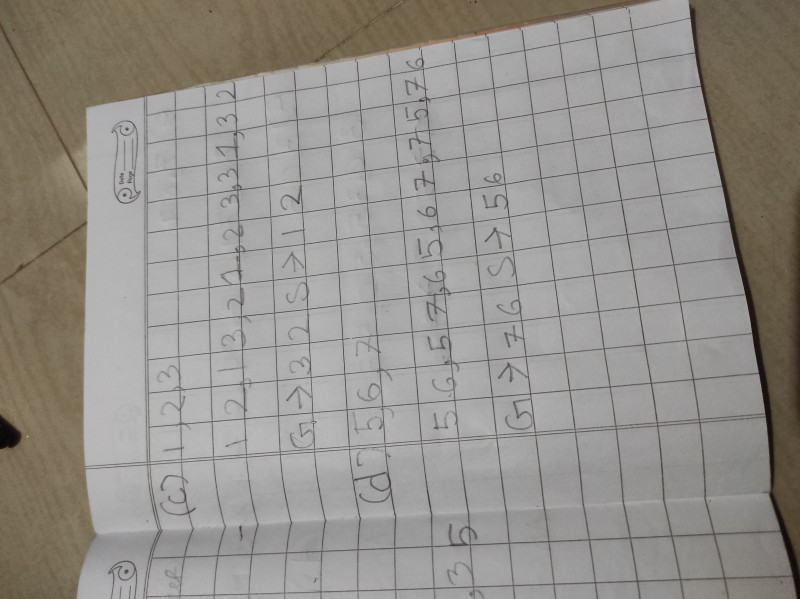 (c) 1, 2, 3
1 2, 1 3, 2 1, 2 3, 3 1, 3 2
G → 3 2 S → 1 2
(d) 5, 6, 7
5 6, 5 7, 6 5, 6 7, 7 5, 7 6
G → 7 6 S → 5 6
, 3 5
Date
Page